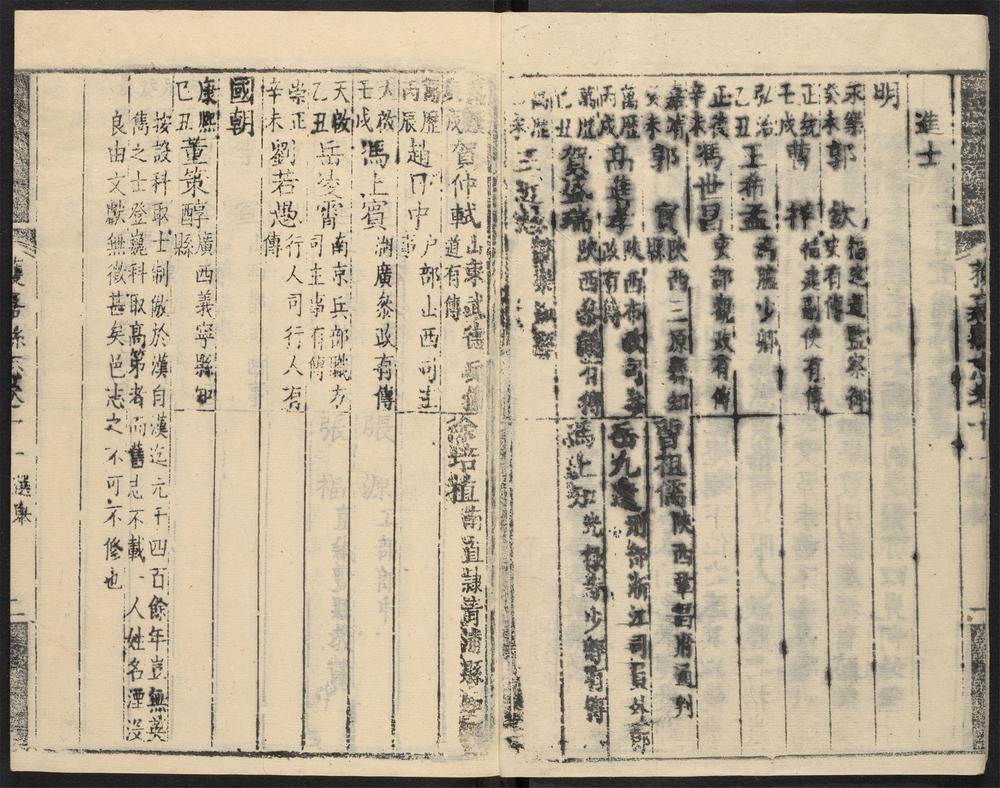 進士
明
永樂癸未郭欽福建道監察御史有傳
正統壬戌藺祥福建副使有傳
弘治乙丑王希孟鴻臚少卿
正德辛未馮世昌吏部觀政有傳
嘉靖癸未郭寶陝西三原縣知縣 祖儒陝西鞏昌府通判
萬曆丙戌高進孝陝西布政司參政有傳 岳九逵刑部浙江司員外郎
萬曆己丑賀盛瑞陝西參議有傳 馮上知光祿寺少卿有傳
萬曆
戌賀仲軾山東武德兵備道有傳 徐培植南直隸青浦縣知
萬曆丙辰趙日中戶部山西司主事
天啟壬戌馮上賓湖廣參政有傳
天啟乙丑岳凌霄南京兵部職方司主事有傳
崇正辛未劉若愚行人司行人有傳
國朝
康熙己丑董策醇廣西義寧縣知縣
按設科取士制倣於漢自漢迄元千四百餘年豈無英
雋之士登巍科取高第者而舊志不載一人姓名湮沒
良由文獻無徵甚矣邑志之不可不修也
獲嘉縣志卷十一 選舉 二